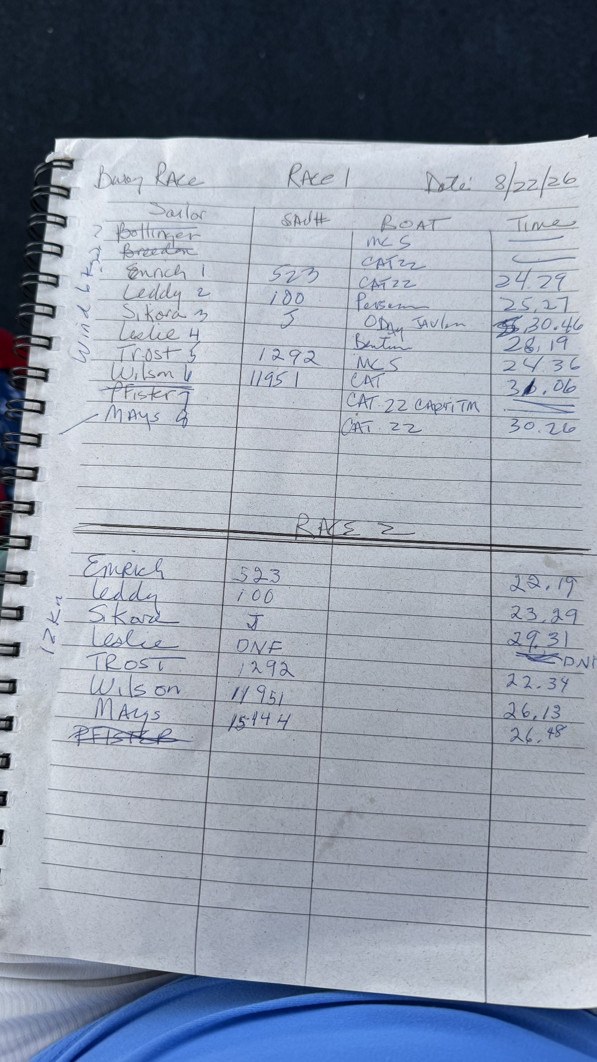 Buoy RACE RACE 1 Date: 8/22/26
Sailor SAil# BOAT Time
Bollinger MC S
Breeden CAT 22
Emrich 1 523 CAT 22 24.29
Leddy 2 100 25.27
Sikora 3 J ODay 30.46
Leslie 4 28.19
Trost 5 1292 MCS 24.36
Wilson 6 11951 CAT 31.06
Pfister 7 CAT 22
MAys 8 CAT 22 30.26
Wind 6 Kn
RACE 2
Emrich 523 22.19
Leddy 100 23.29
Sikora J 29.31
Leslie DNF DNF
TROST 1292 22.34
Wilson 11951 26.13
MAys 15144 26.48
PFISTER
12 Kn